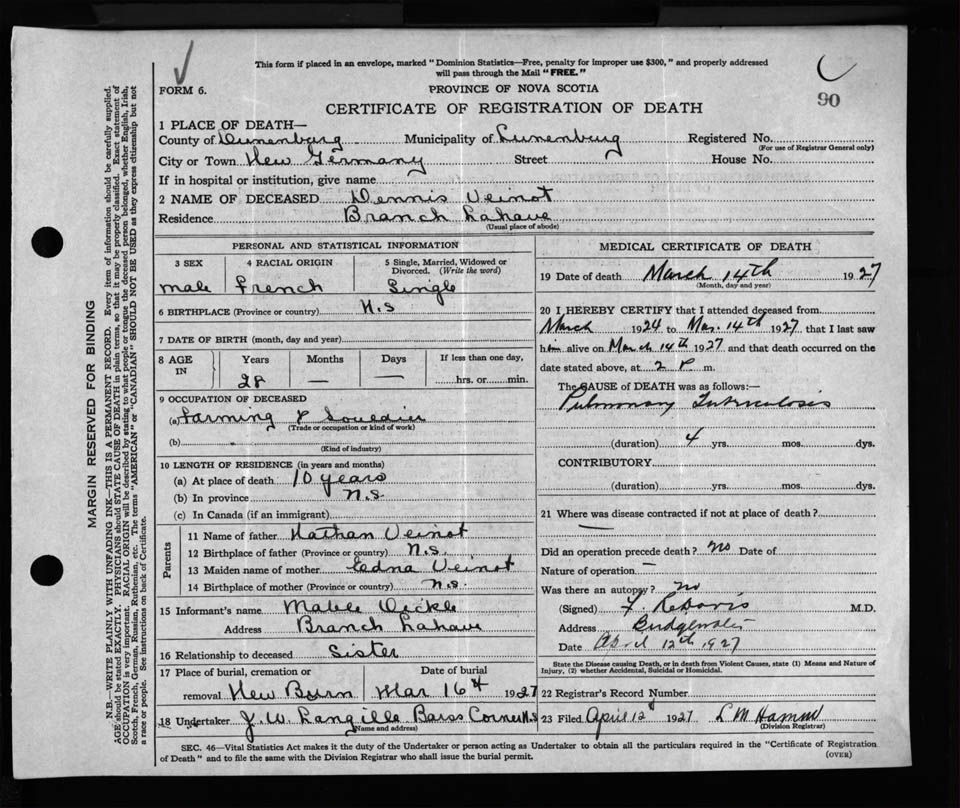 This form if placed in an envelope, marked "Dominion Statistics—Free, penalty for improper use $300," and properly addressed
will pass through the Mail "FREE."
90
FORM 6.
PROVINCE OF NOVA SCOTIA
CERTIFICATE OF REGISTRATION OF DEATH
1 PLACE OF DEATH—
County of Lunenburg Municipality of Lunenburg Registered No.
(For use of Registrar General only)
City or Town New Germany Street House No.
If in hospital or institution, give name
2 NAME OF DECEASED Dennis Veinot
Residence Branch Lahave
(Usual place of abode)
PERSONAL AND STATISTICAL INFORMATION
3 SEX 4 RACIAL ORIGIN 5 Single, Married, Widowed or Divorced. (Write the word)
male French Single
6 BIRTHPLACE (Province or country) N.S
7 DATE OF BIRTH (month, day and year)
8 AGE IN Years Months Days If less than one day,
28 — — hrs. or min.
9 OCCUPATION OF DECEASED
(a) Farming &
(Trade or occupation or kind of work)
(b)
(Kind of industry)
10 LENGTH OF RESIDENCE (in years and months)
(a) At place of death 10 years
(b) In province N.S
(c) In Canada (if an immigrant)
Parents
11 Name of father Nathan Veinot
12 Birthplace of father (Province or country) N.S.
13 Maiden name of mother Edna Veinot
14 Birthplace of mother (Province or country) N.S
15 Informant's name Mabel
Address Branch Lahave
16 Relationship to deceased Sister
17 Place of burial, cremation or removal Date of burial
New Burn Mar 16th 1927
18 Undertaker J. W. Langille Barss Corner N.S
(Name and address)
MEDICAL CERTIFICATE OF DEATH
19 Date of death March 14th 1927
(Month, day and year)
20 I HEREBY CERTIFY that I attended deceased from
March 1924 to Mar. 14th 1927, that I last saw
him alive on March 14th 1927 and that death occurred on the
date stated above, at 2 P. m.
The CAUSE OF DEATH was as follows:—
Pulmonary Tuberculosis
(duration) 4 yrs. mos. dys.
CONTRIBUTORY
(duration) yrs. mos. dys.
21 Where was disease contracted if not at place of death?
—
Did an operation precede death? no Date of
Nature of operation —
Was there an autopsy? no
(Signed) M.D.
Address Bridgewater
Date April 12th 1927
State the Disease causing Death, or in death from Violent Causes, state (1) Means and Nature of
Injury, (2) whether Accidental, Suicidal or Homicidal.
22 Registrar's Record Number
23 Filed April 12 1927 L M Hamm
(Division Registrar)
SEC. 46—Vital Statistics Act makes it the duty of the Undertaker or person acting as Undertaker to obtain all the particulars required in the "Certificate of Registration
of Death" and to file the same with the Division Registrar who shall issue the burial permit.
(OVER)
MARGIN RESERVED FOR BINDING
N.B.—WRITE PLAINLY WITH UNFADING INK—THIS IS A PERMANENT RECORD. Every item of information should be carefully supplied.
AGE should be stated EXACTLY. PHYSICIANS should STATE CAUSE OF DEATH in plain terms, so that it may be properly classified. Exact statement of
OCCUPATION is very important. RACIAL ORIGIN will be described by stating to what people or tongue the deceased person belonged, whether English, Irish,
Scotch, French, German, Russian, Ruthenian, etc. The terms "AMERICAN" or "CANADIAN" SHOULD NOT BE USED as they express citizenship but not
a race or people. See instructions on back of Certificate.